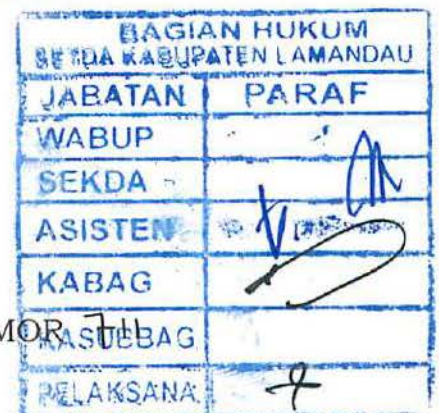 BAGIAN HUKUM
SETDA KABUPATEN LAMANDAU
JABATAN PARAF
WABUP
SEKDA
ASISTEN
KABAG
MOR KASUBBAG
PELAKSANA